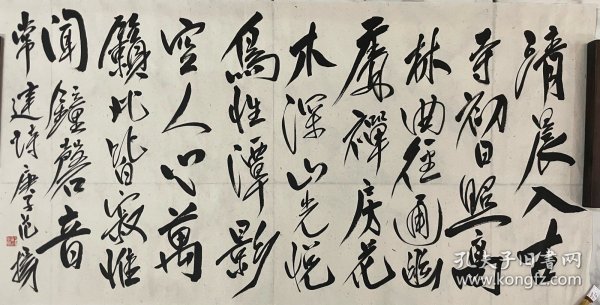 清晨入古
寺初日照高
林曲徑通幽
處禪房花
木深山光悦
鳥性潭影
空人心萬
籟此皆寂惟
聞鐘磬音
常建詩庚子范揚
孔夫子旧书网
www.kongfz.com